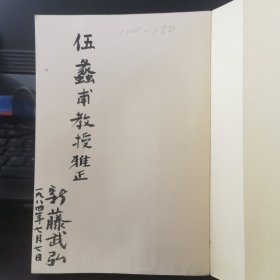 伍蠡甫教授雅正
新藤武弘
一九八四年七月七日